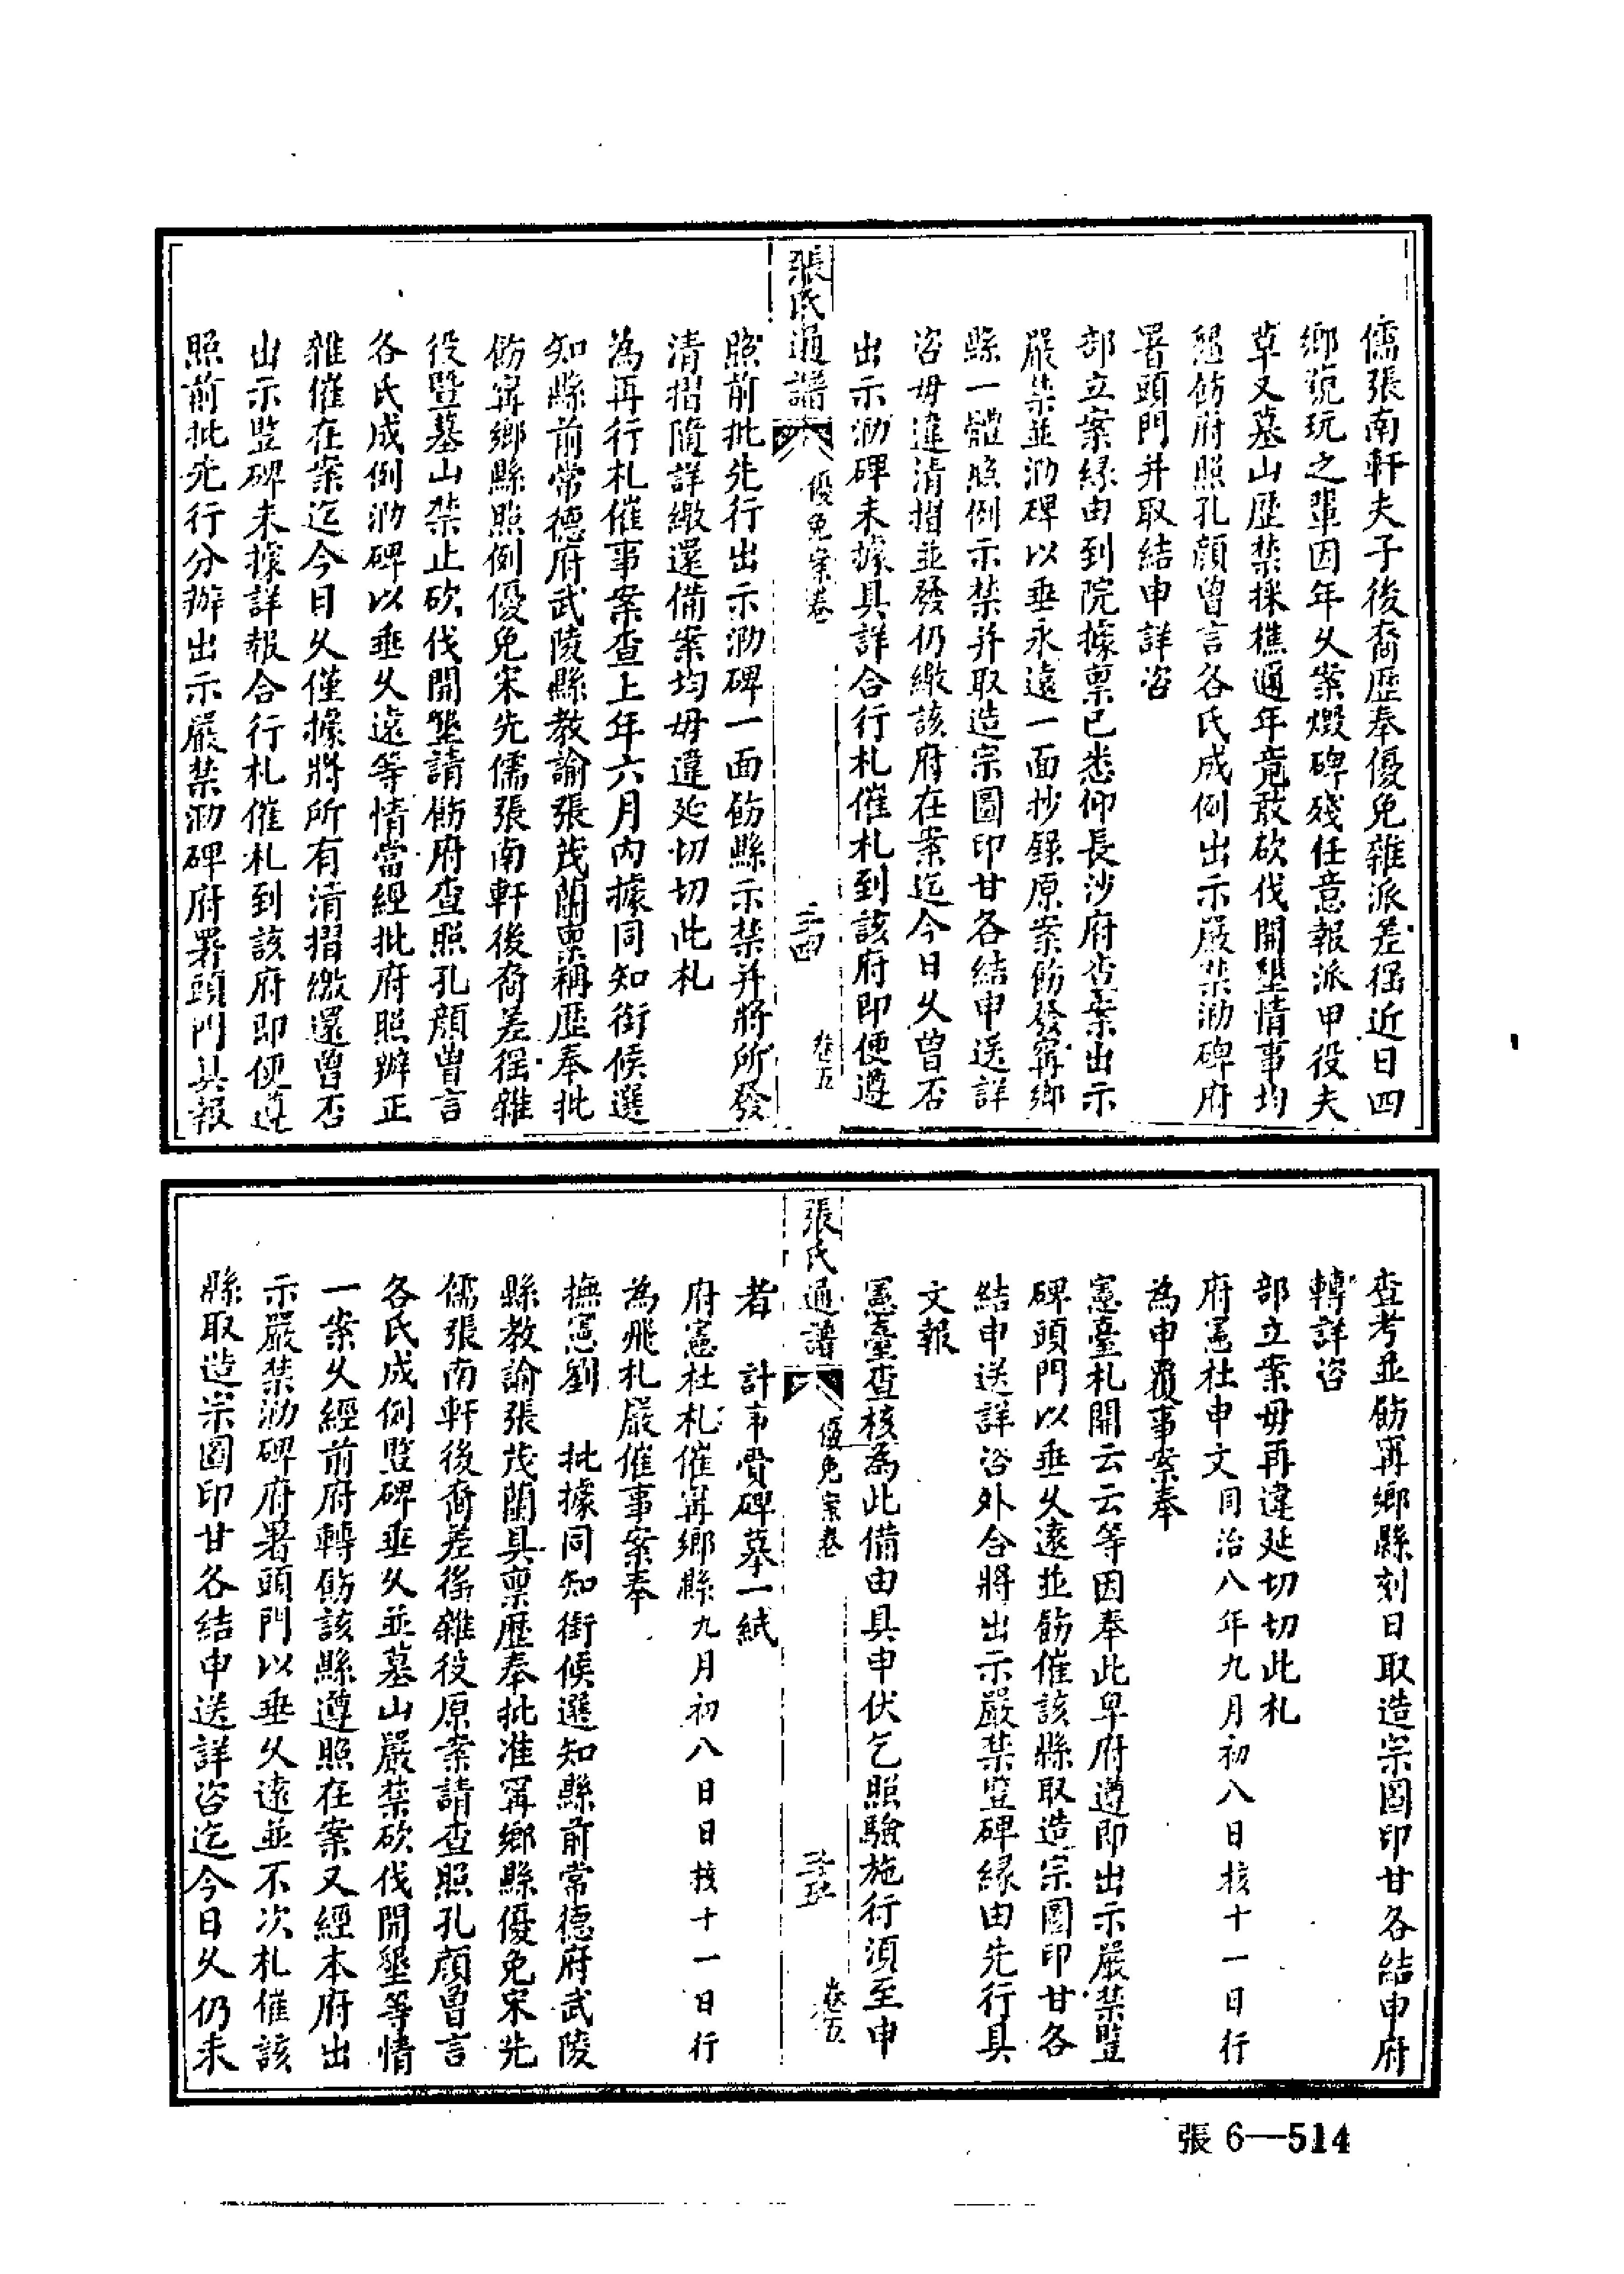 儒張南軒夫子後裔歷奉優免雜派差徭近日四
鄉豌玩之輩因年久案燬碑殘任意報派甲役夫
草又墓山歷禁採樵邇年竟敢砍伐開墾情事均
懇飭府照孔顏曾言各氏成例出示嚴禁泐碑府
署頭門并取結申詳咨
部立案緣由到院據稟已悉仰長沙府查案出示
嚴禁並泐碑以垂永遠一面抄錄原案飭發甯鄉
縣一體照例示禁并取造宗圖印甘各結申送詳
咨毋違清摺並發仍繳該府在案迄今日久曾否
出示泐碑未據具詳合行札催札到該府即便遵
張氏通譜
優免案卷
三十四
卷五
照前批先行出示泐碑一面飭縣示禁并將所發
清摺隨詳繳還備案均毋違延切切此札
為再行札催事案查上年六月內據同知銜候選
知縣前常德府武陵縣教諭張茂蘭稟稱歷奉批
飭甯鄉縣照例優免宋先儒張南軒後裔差徭雜
役暨墓山禁止砍伐開墾請飭府查照孔顏曾言
各氏成例泐碑以垂久遠等情當經批府照辦正
雜催在案迄今日久僅據將所有清摺繳還曾否
出示竪碑未據詳報合行札催札到該府即便遵
照前批先行分辦出示嚴禁泐碑府署頭門具報
查考並飭甯鄉縣刻日取造宗圖印甘各結申府
轉詳咨
部立案毋再違延切切此札
府憲杜申文同治八年九月初八日核十一日行
為申覆事案奉
憲臺札開云云等因奉此卑府遵即出示嚴禁竪
碑頭門以垂久遠並飭催該縣取造宗圖印甘各
結申送詳咨外合將出示嚴禁竪碑緣由先行具
文報
憲臺查核為此備由具申伏乞照驗施行須至申
張氏通譜
優免案卷
三十五
卷五
者　計申賫碑摹一紙
府憲杜札催甯鄉縣九月初八日日核十一日行
為飛札嚴催事案奉
撫憲劉　批據同知銜候選知縣前常德府武陵
縣教諭張茂蘭具稟歷奉批准甯鄉縣優免宋先
儒張南軒後裔差徭雜役原案請查照孔顏曾言
各氏成例竪碑垂久並墓山嚴禁砍伐開墾等情
一案久經前府轉飭該縣遵照在案又經本府出
示嚴禁泐碑府署頭門以垂久遠並不次札催該
縣取造宗圖印甘各結申送詳咨迄今日久仍未
張6—514